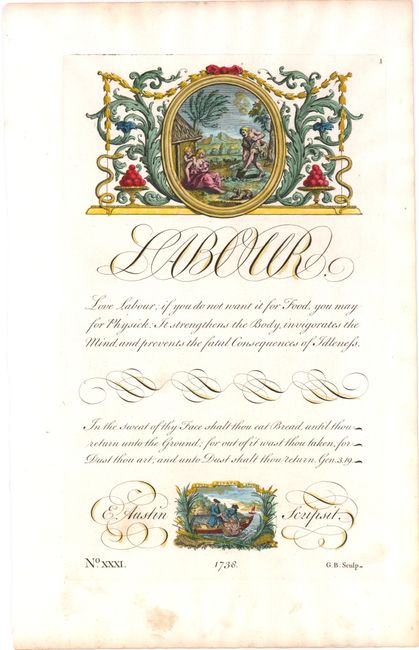 1
LABOUR.
Love Labour; if you do not want it for Food, you may
for Physick: It strengthens the Body, invigorates the
Mind, and prevents the fatal Consequences of Idleness.
In the sweat of thy Face shalt thou eat Bread, until thou
return unto the Ground; for out of it wast thou taken, for
Dust thou art, and unto Dust shalt thou return. Gen. 3.19.
E. Austin Scripsit.
No. XXXI. 1738. G. B. Sculp.